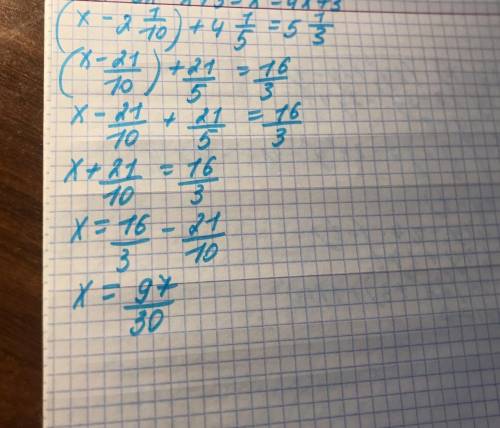 (x - 2 1/10) + 4 1/5 = 5 1/3
(x - 21/10) + 21/5 = 16/3
x - 21/10 + 21/5 = 16/3
x + 21/10 = 16/3
x = 16/3 - 21/10
x = 97/30